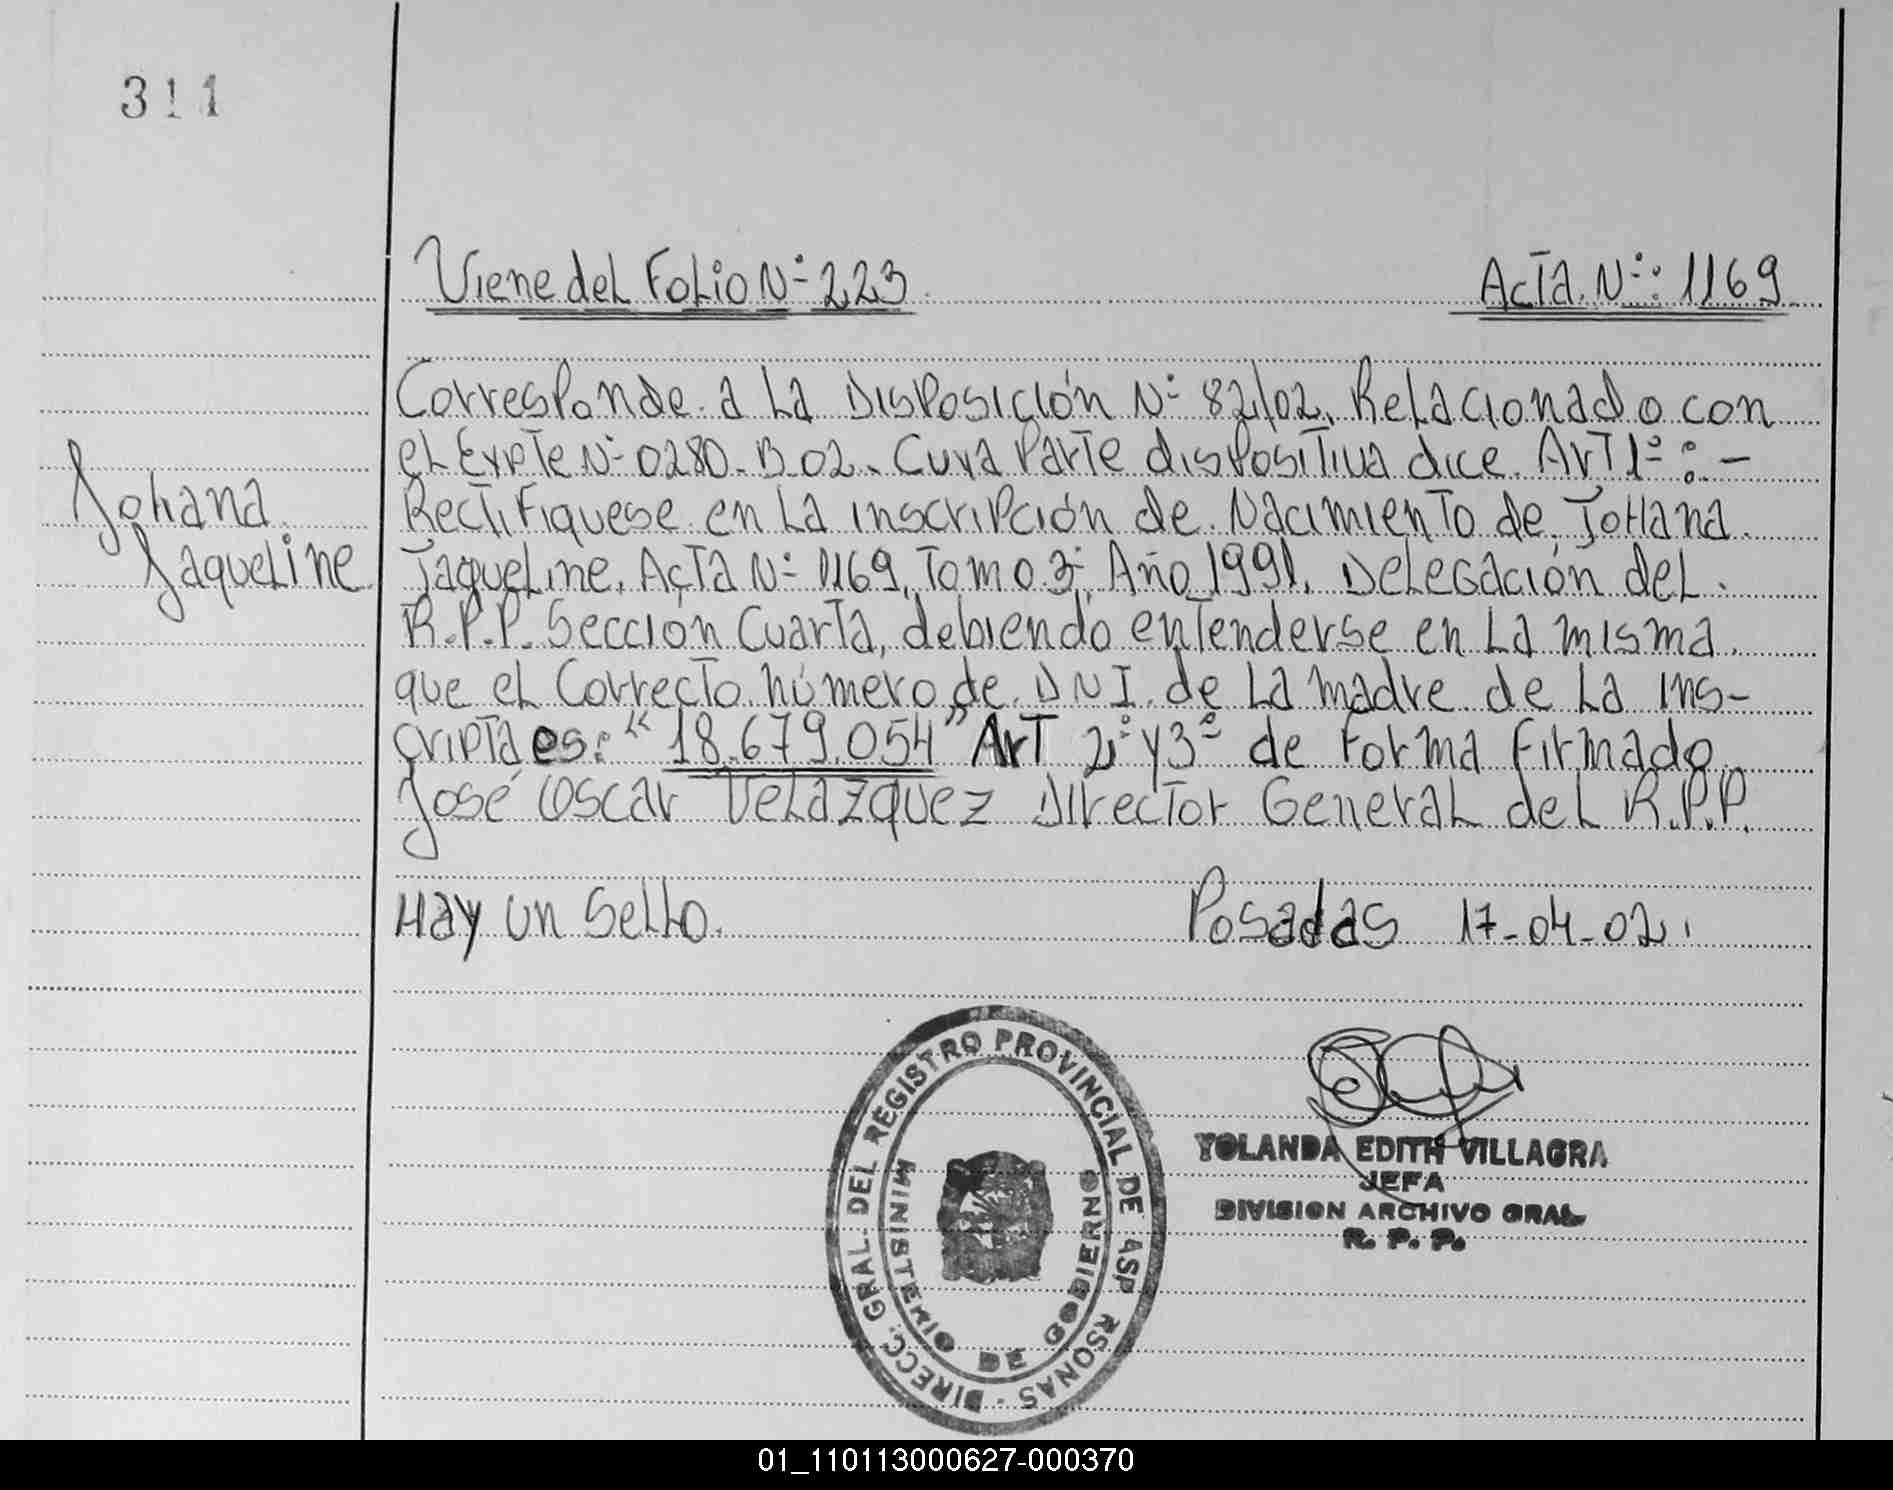 311
Viene del Folio Nº 223. Acta Nº: 1169
Corresponde a La Disposición Nº 82/02, Relacionado con
el Expte Nº 0280-B-02. Cuya Parte dispositiva dice. Art 1º: -
Rectifiquese en La inscripción de Nacimiento de Johana
Johana
Jaqueline, Acta Nº 1169, Tomo 3º, Año 1991, Delegación del
Jaqueline
R.P.P. Sección Cuarta, debiendo entenderse en La misma
que el Correcto número de DNI. de La madre de La ins-
cripta es: "18.679.054" Art 2º y 3º de Forma Firmado
José Oscar Velazquez Director General del R.P.P.
Hay un Sello. Posadas 17-04-02.
DIRECC. GRAL. DEL REGISTRO PROVINCIAL DE ASP RSONAS -
MINISTERIO DE GOBIERNO
YOLANDA EDITH VILLAGRA
JEFA
DIVISION ARCHIVO GRAL
R. P. P.
01_110113000627-000370